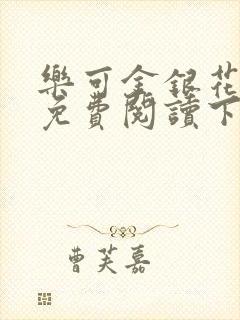 樂可金銀花
免費閱讀下
曹芙嘉